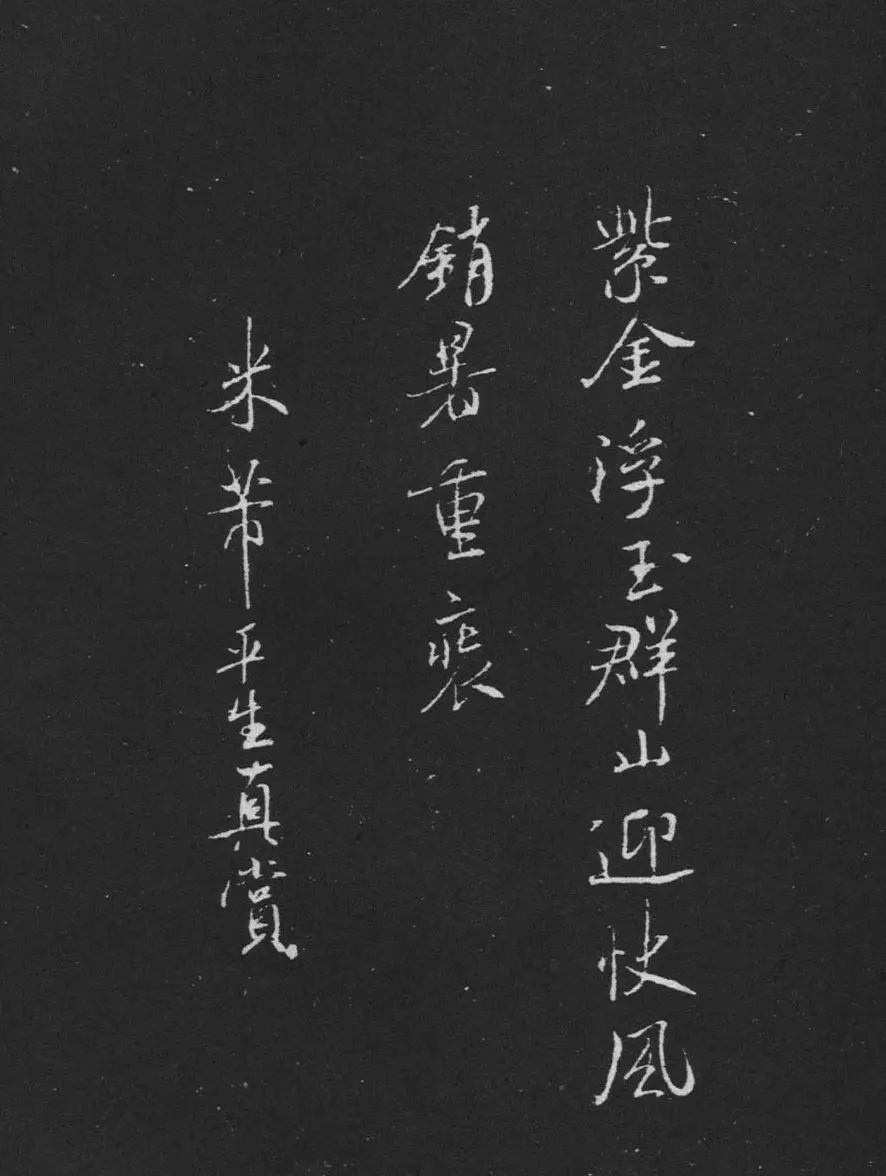 紫金浮玉群山迎快風
銷暑重裘
米芾平生真賞